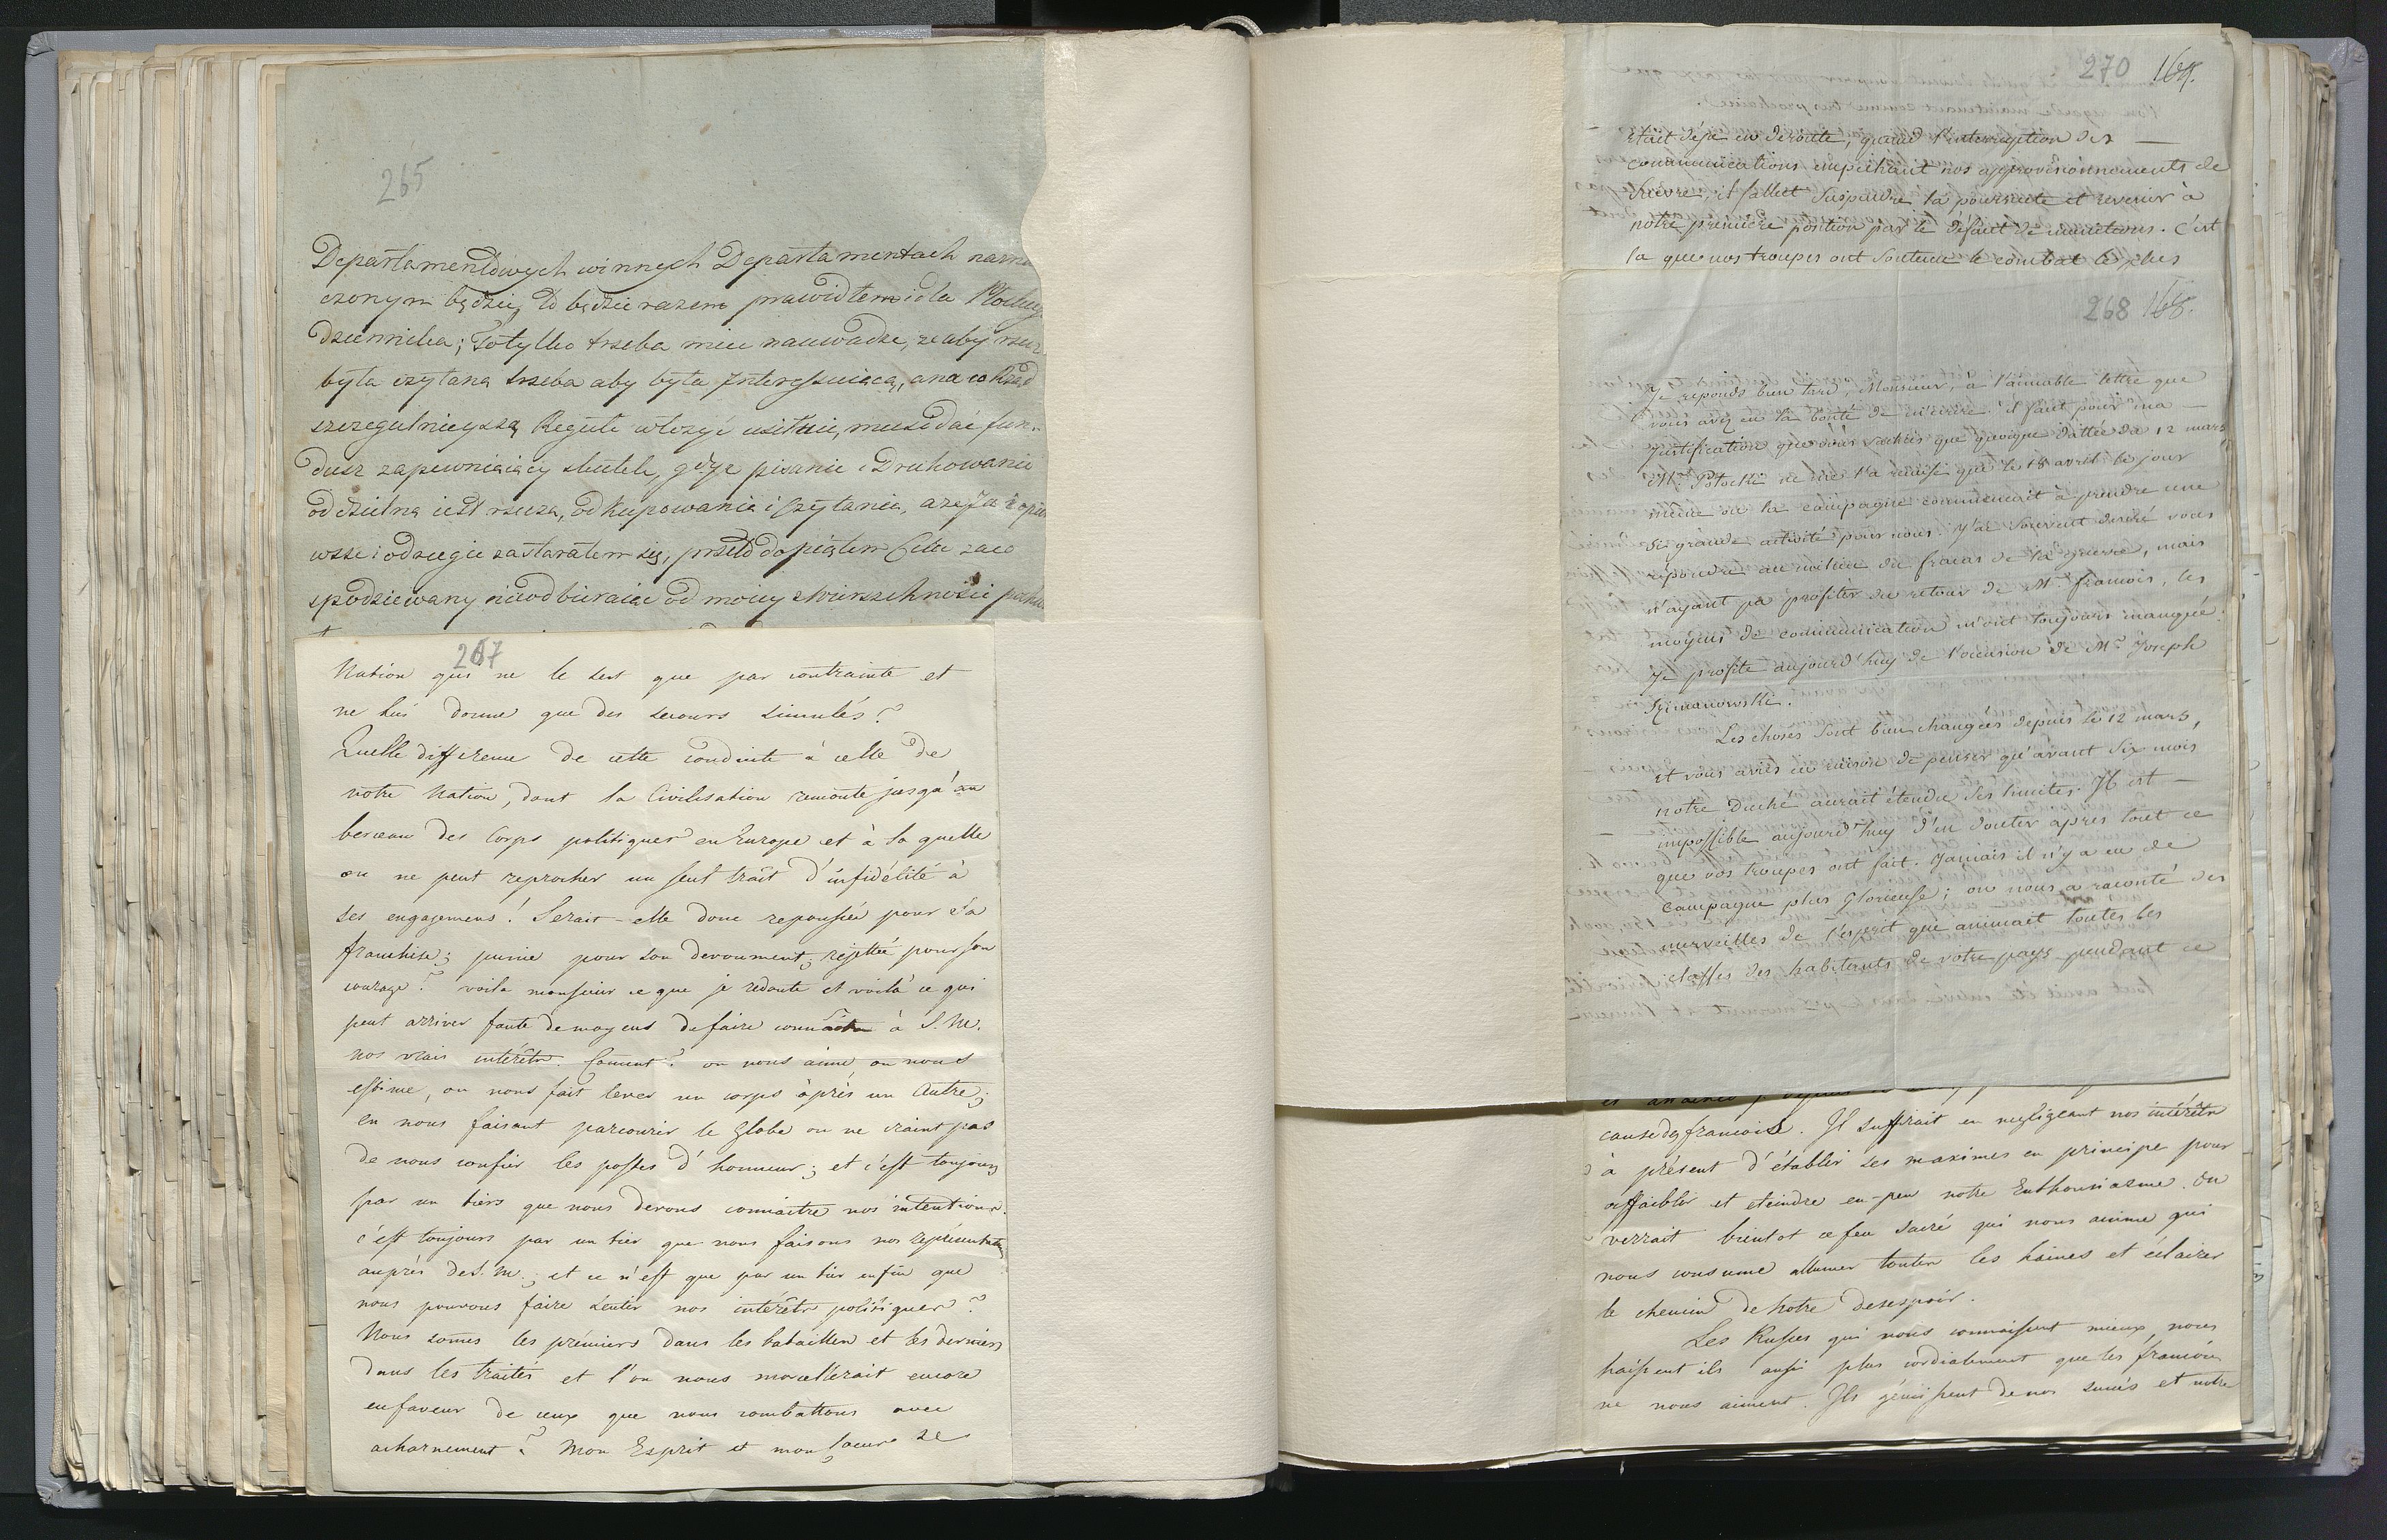 265
Departamentowych winnych Departamentach nazna
czonym będzie, to będzie razem prawidłem i dla
Dziennika; To tylko trzeba miec na uwadze, ze aby rzecz
była czytana trzeba aby była Interessuiącą, a na
szczegulnieyszą Regute włozyć usiłuie, musi dać fun-
dusz zapewniaiący skutek, gdyz pisanie i Drukowanie
oddzielną iest rzeczą, od kupowania i Czytania, a ze Ja
wsze i odzugie zastarałem się, przeto dopiąłem Celu
spodziewany nieodbieraiąc od moiey zwierzchności
267
Nation qui ne le sert que par contrainte et
ne lui donne que des secours simulés?
Quelle difference de cette conduite à celle de
notre Nation, dont la Civilisation remonte jusqu'au
berceau des Corps politiques en Europe et à la quelle
on ne peut reprocher un seul trait d'infidélité à
ses engagemens! Serait-elle donc repoussée pour sa
franchise; punie pour son devoument; rejettée pour son
courage? voila monsieur ce que je redoute et voilà ce qui
peut arriver faute de moyens de faire connaitre à S. M.
nos vrais intérêts. Coment? on nous aime, on nous
estime, on nous fait lever un corps àprès un Autre;
en nous faisant parcourir le Globe on ne craint pas
de nous confier les postes d'honneur; et c'est toujours
par un tiers que nous devons connaitre nos intentions.
c'est toujours par un tier que nous faisons nos représentations
auprès de S. M.; et ce n'est que par un tier enfin que
nous pouvons faire sentir nos intérêts politiques?
Nous somes les prémiers dans les batailles et les derniers
dans les traités et l'on nous morcellerait encore
en faveur de ceux que nous combattons avec
acharnement? Mon Esprit et mon coeur se
270 169.
était déja en deroute, quand l'interruption des
communications empechant nos approvisionnements de
, il fallut suspendre la poursuite et revenir à
notre première position par le défaut de munitions. C'est
la que nos troupes ont soutenu le combat le plus
268 168.
Je reponds bien tard, Monsieur, a l'aimable lettre que
vous avez eu la bonté de m'ecrire. il faut pour ma
justification que vous sachiés que quoique dattée du 12 mars
Mr. Potocki ne me l'a remise que le 18 avril le jour
même ou la campagne commencait à prendre une
si grande activité pour nous. J'ai souvent desiré vous
répondre au milieu du fracas de la guerre, mais
n'ayant pu profiter du retour de Mr francois, les
moyens de communication m'ont toujours manqué.
Je profite aujourd'huy de l'occasion de Mr. Joseph
Szimanowski.
Les choses sont bien changées depuis le 12 mars,
et vous aviés eu raison de penser qu'avant six mois
notre Duché aurait étendu ses limites. Il est
impossible aujourd'huy d'en douter après tout ce
que vos troupes ont fait. Jamais il n'y a eu de
campagne plus glorieuse; on nous a raconté des
merveilles de l'esprit que animait toutes les
classes des habitants de votre pays pendant ce
cause des francois. Il suffirait en negligeant nos intérêts
à présent d'établir ses maximes en principe pour
affaiblir et eteindre en-peu notre Enthousiasme. On
verrait bientot ce feu sacré qui nous anime qui
nous consume allumer toutes les haines et éclairer
le chemin de notre desespoir.
Les Russes qui nous connaissent mieux, nous
haissent ils aussi plus cordialement que les francois
ne nous aiment. Ils gémissent de nos succés et notre